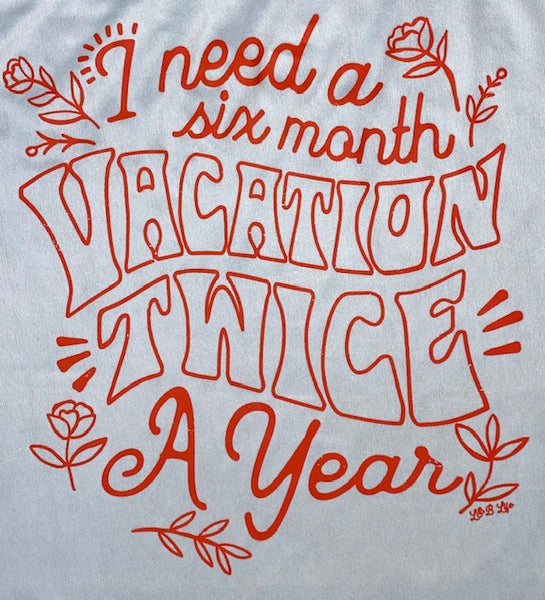 I need a
six month
VACATION
TWICE
A Year
L&B Life